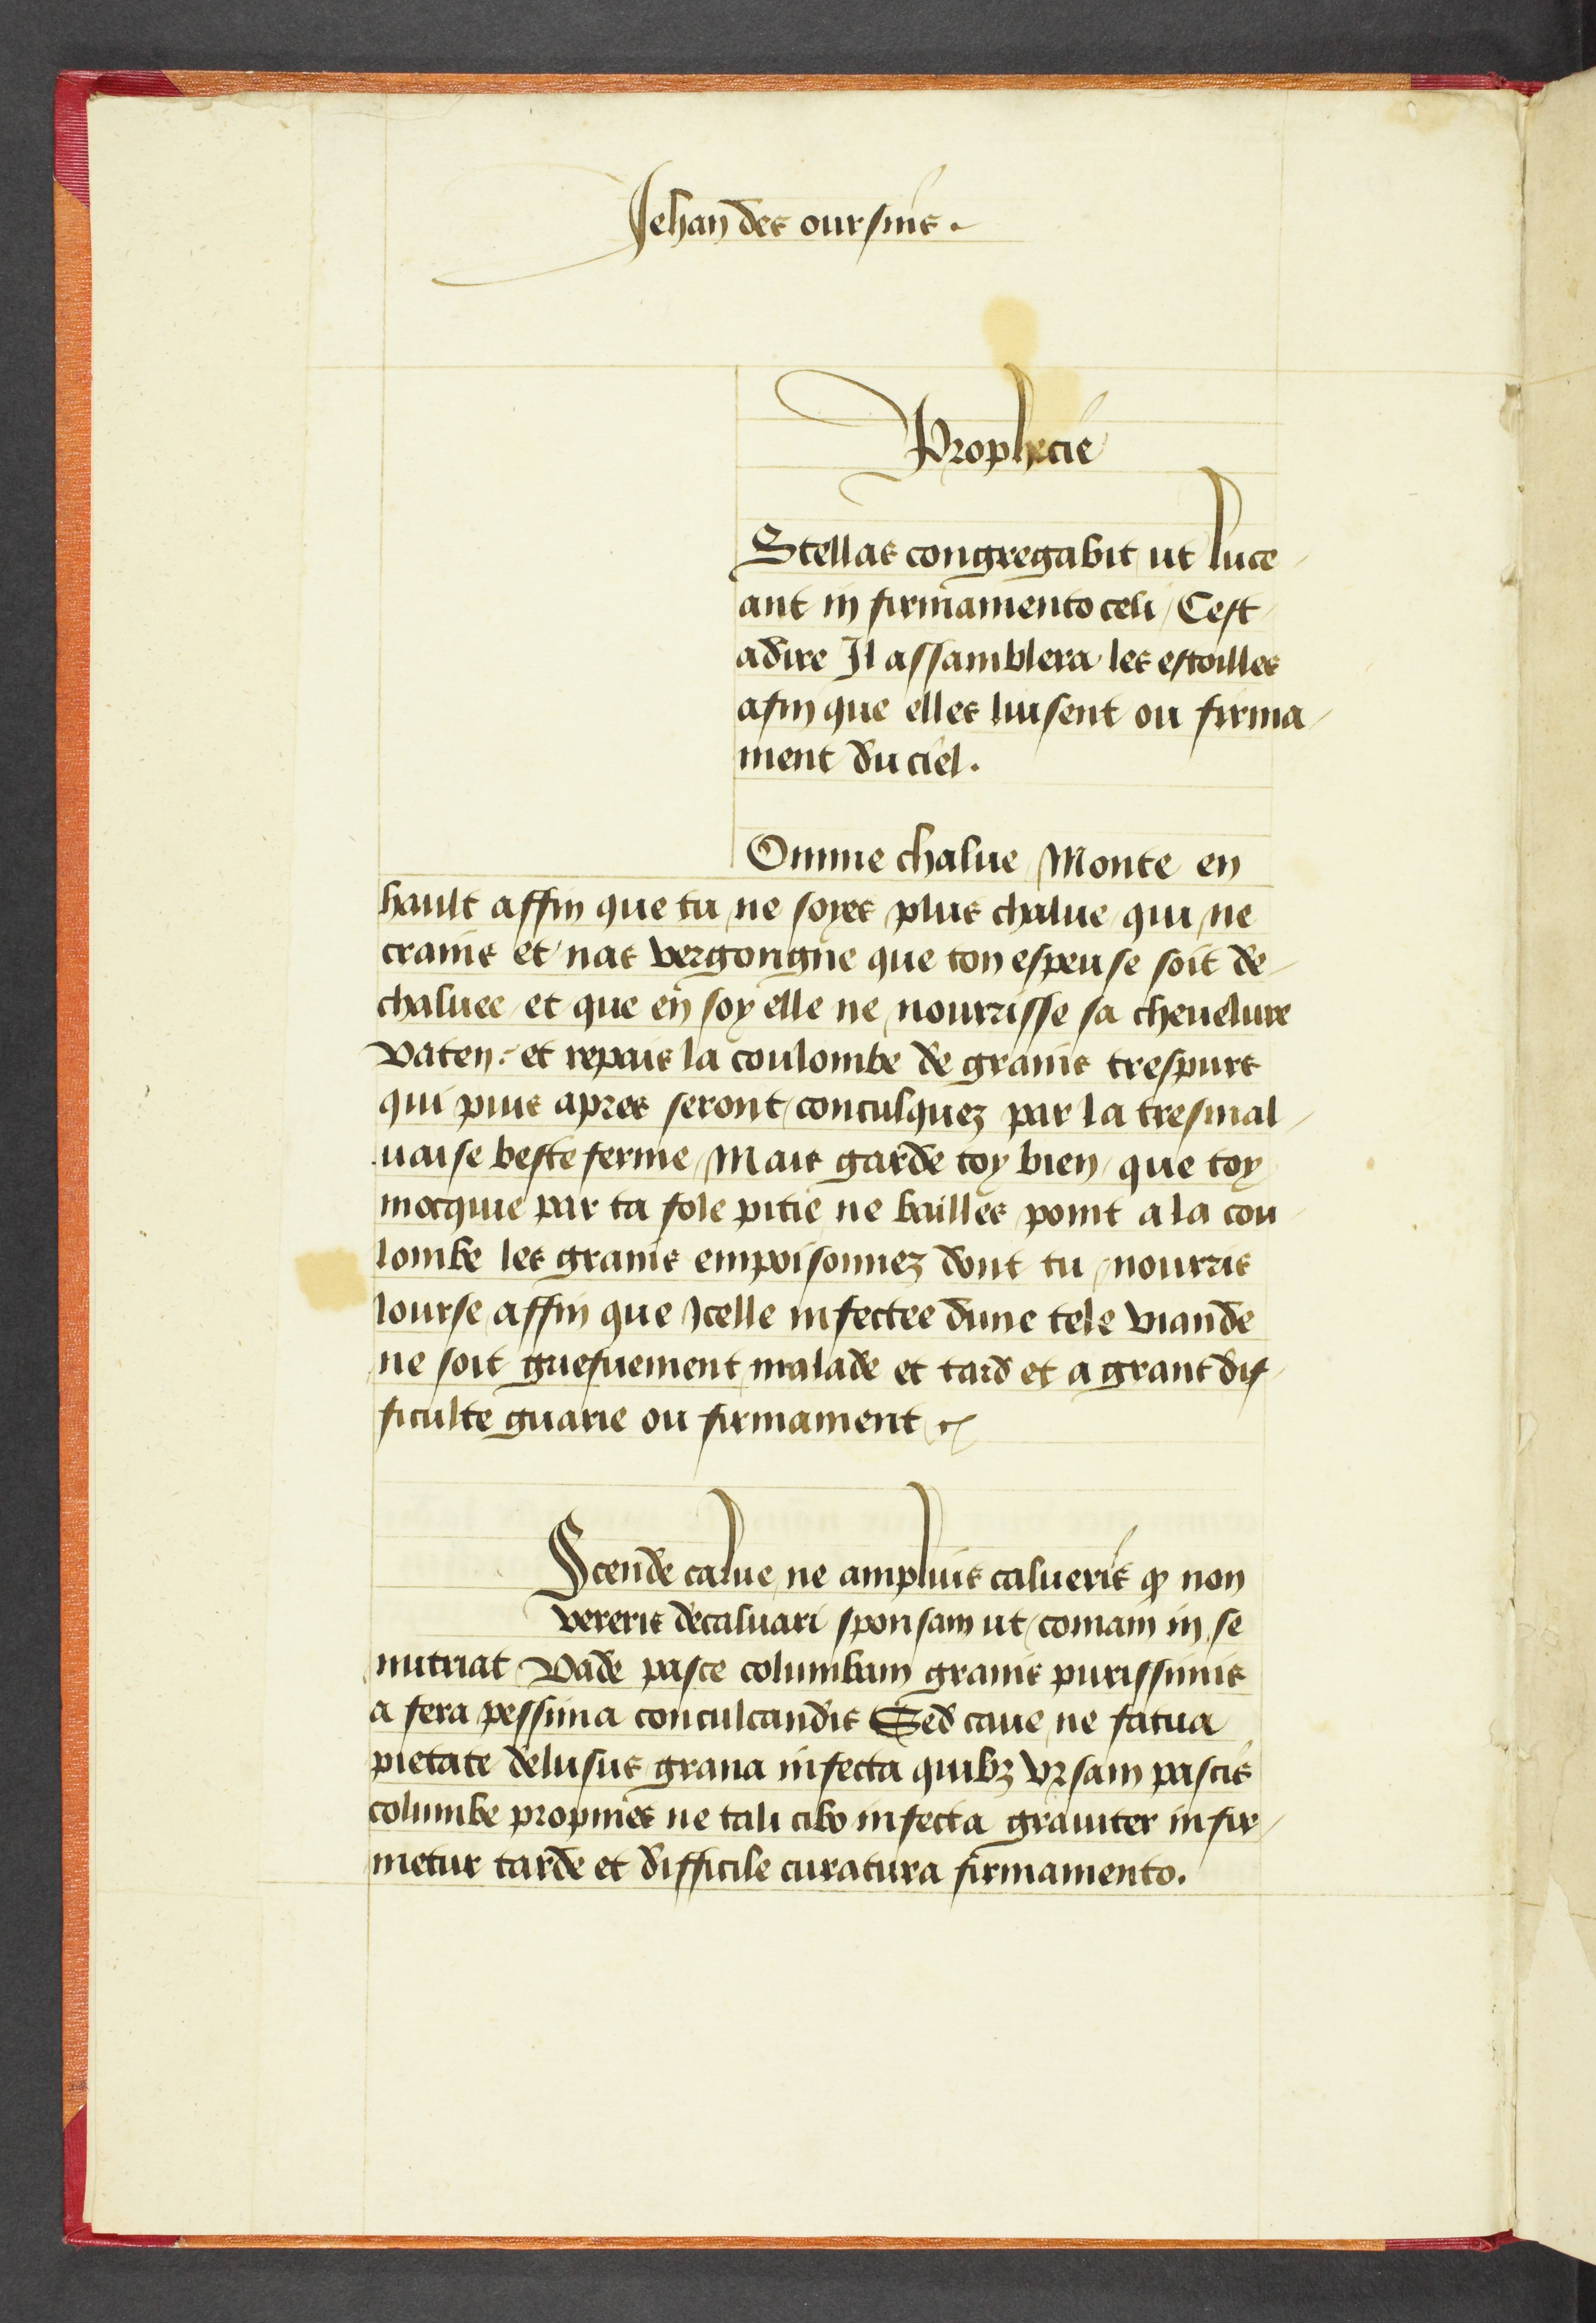 Jehan des oursins.
Prophecie
Stellas congregabit ut luce/
ant in firmamento celi / Cest
adire Il assamblera les estoilles
afin que elles luisent ou firma/
ment du ciel.
Omme chalue / Monte en
hault affin que tu ne soyes plus chalue qui ne
crains et nas vergongne que ton espeuse soit de/
chaluee et que en soy elle ne nourrisse sa cheuelure
Vaten: et repais la coulombe de grains trespurs
qui puis apres seront conculquez par la tresmal/
uaise beste ferme / Mais garde toy bien / que toy
mocquie par ta fole pitie ne bailles point a la cou
lombe les grains empoisonnez dont tu nourris
lourse / affin que Icelle infectee dune tele viande
ne soit griefuement malade et tard et a grant dif/
ficulte guarie ou firmament
Scende calue ne amplius calueris qͥ non
vereris decaluari sponsam ut comam in se
nutriat Vade pasce columbam granis purissimis
a fera pessima conculcandis Sed caue ne fatua
pietate delusus grana infecta quibꝫ vrsam pascis
columbe propines ne tali cibo infecta grauiter infir/
metur tarde et difficile curatura firmamento.